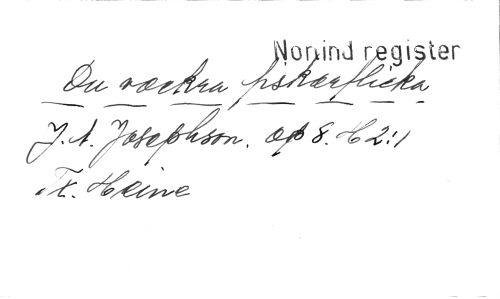 Norrind register
Du vackra fiskareflicka
J. A. Josephson. op 8. H 2:1
Tx. Heine